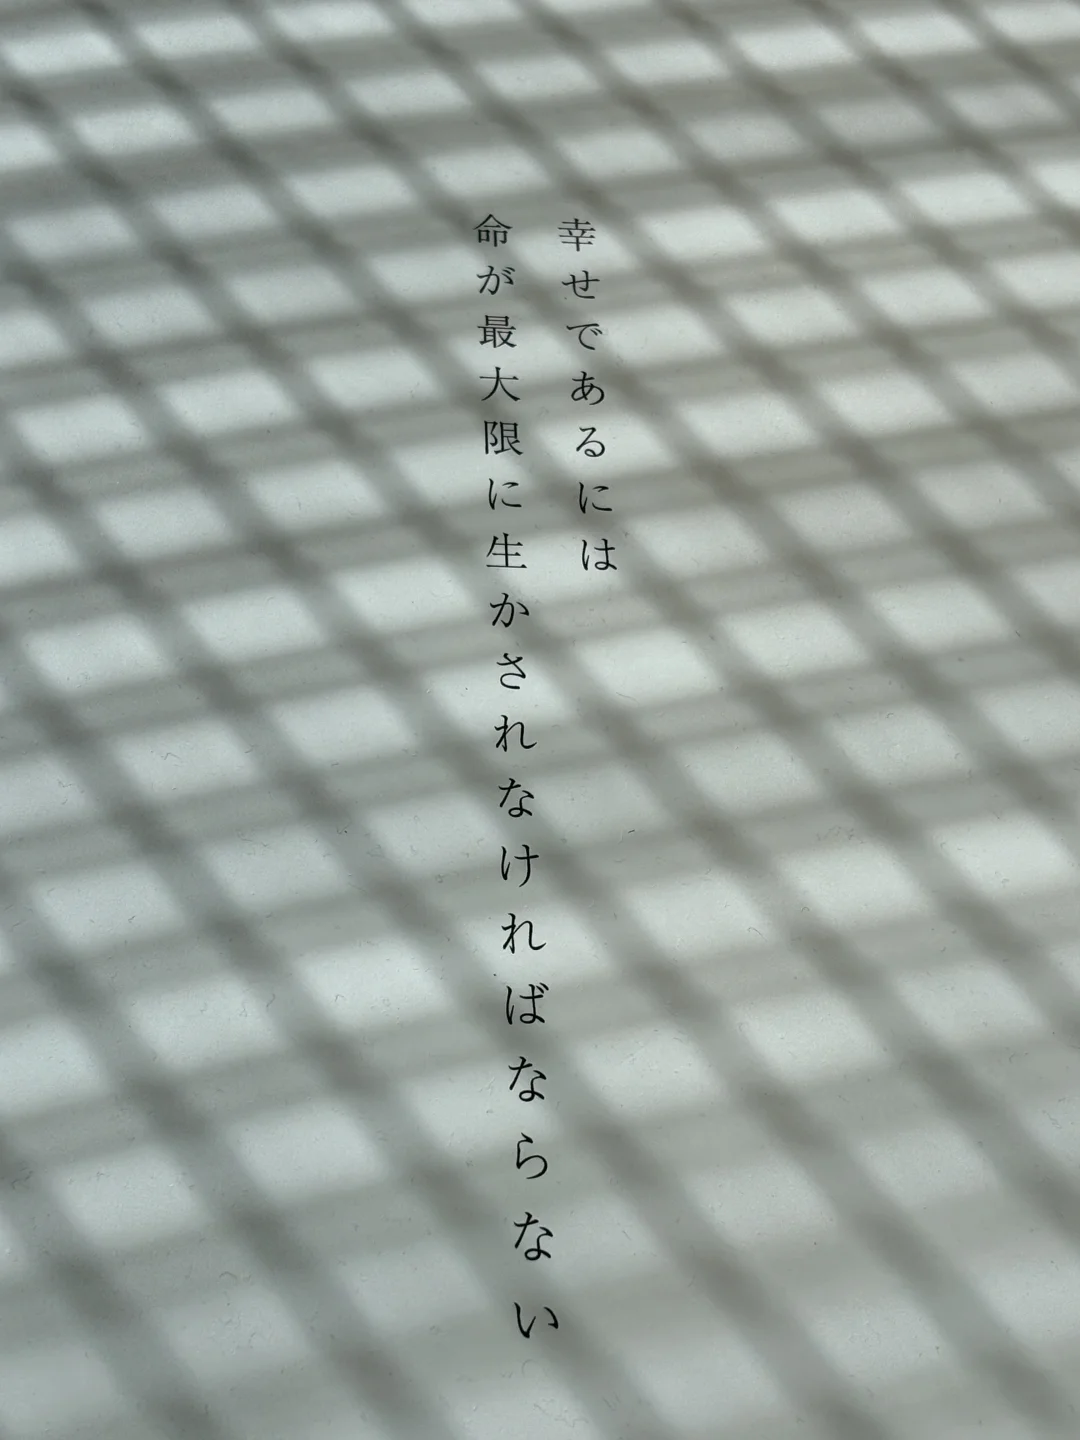 幸せであるには
命が最大限に生かされなければならない